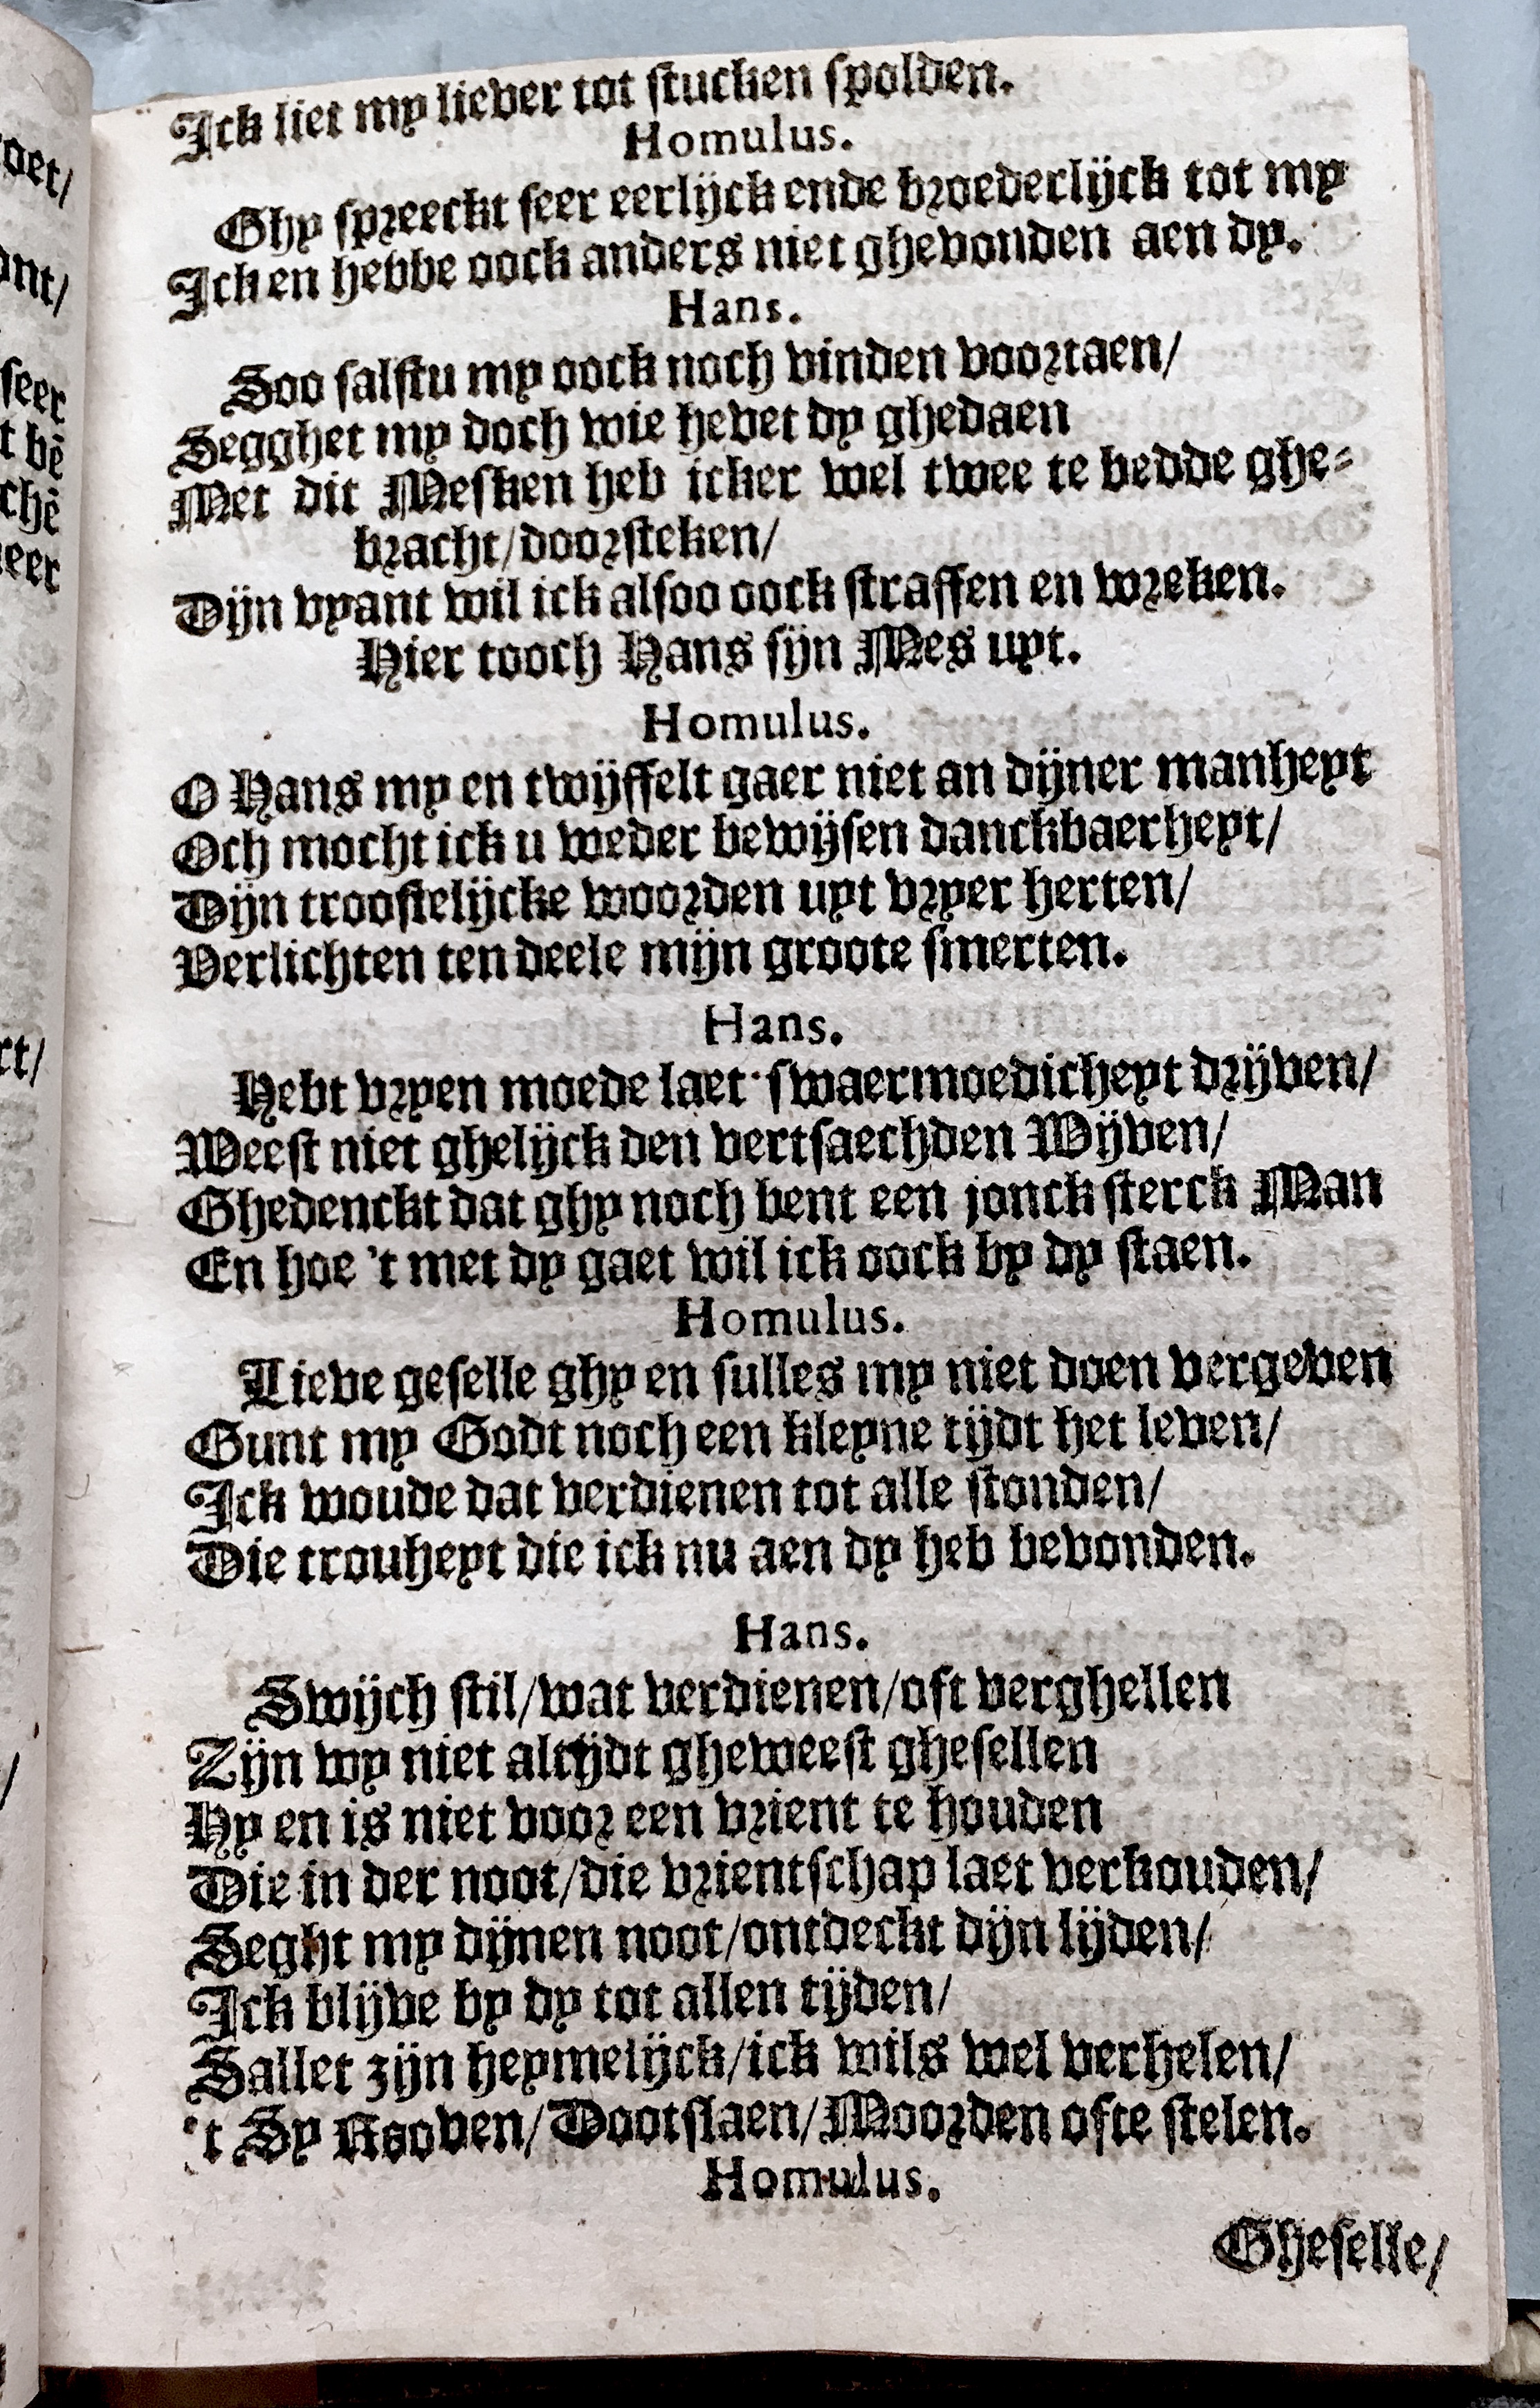 Ick liet my liever tot stucken spolden.
Homulus.
Ghy spreeckt seer eerlijck ende broederlijck tot my
Ick en hebbe oock anders niet ghevonden aen dy.
Hans.
Soo salstu my oock noch vinden voortaen/
Segghet my doch wie hevet dy ghedaen
Met dit Mesken heb icker wel twee te bedde ghe-
bracht/doorsteken/
Dijn vyant wil ick alsoo oock straffen en wreken.
Hier tooch Hans sijn Mes uyt.
Homulus.
O Hans my en twijffelt gaer niet an dijner manheyt
Och mocht ick u weder bewijsen danckbaerheyt/
Dijn troostelijcke woorden uyt vryer herten/
Verlichten ten deele mijn groote smerten.
Hans.
Hebt vryen moede laet swaermoedicheyt drijven/
Weest niet ghelijck den vertsaechden Wijven/
Ghedenckt dat ghy noch bent een jonck sterck Man
En hoe 't met dy gaet wil ick oock by dy staen.
Homulus.
Lieve geselle ghy en sulles my niet doen vergeven
Gunt my Godt noch een kleyne tijdt het leven/
Ick woude dat verdienen tot alle stonden/
Die trouheyt die ick nu aen dy heb bevonden.
Hans.
Swijch stil/wat verdienen/oft verghellen
Zijn wy niet altijdt gheweest ghesellen
Hy en is niet voor een vrient te houden
Die in der noot/die vrientschap laet verkouden/
Seght my dijnen noot/ontdeckt dijn lijden/
Ick blijve by dy tot allen tijden/
Sallet zijn heymelijck/ick wils wel verhelen/
't Sy Rooven/Dootslaen/Moorden ofte stelen.
Homulus.
Gheselle/